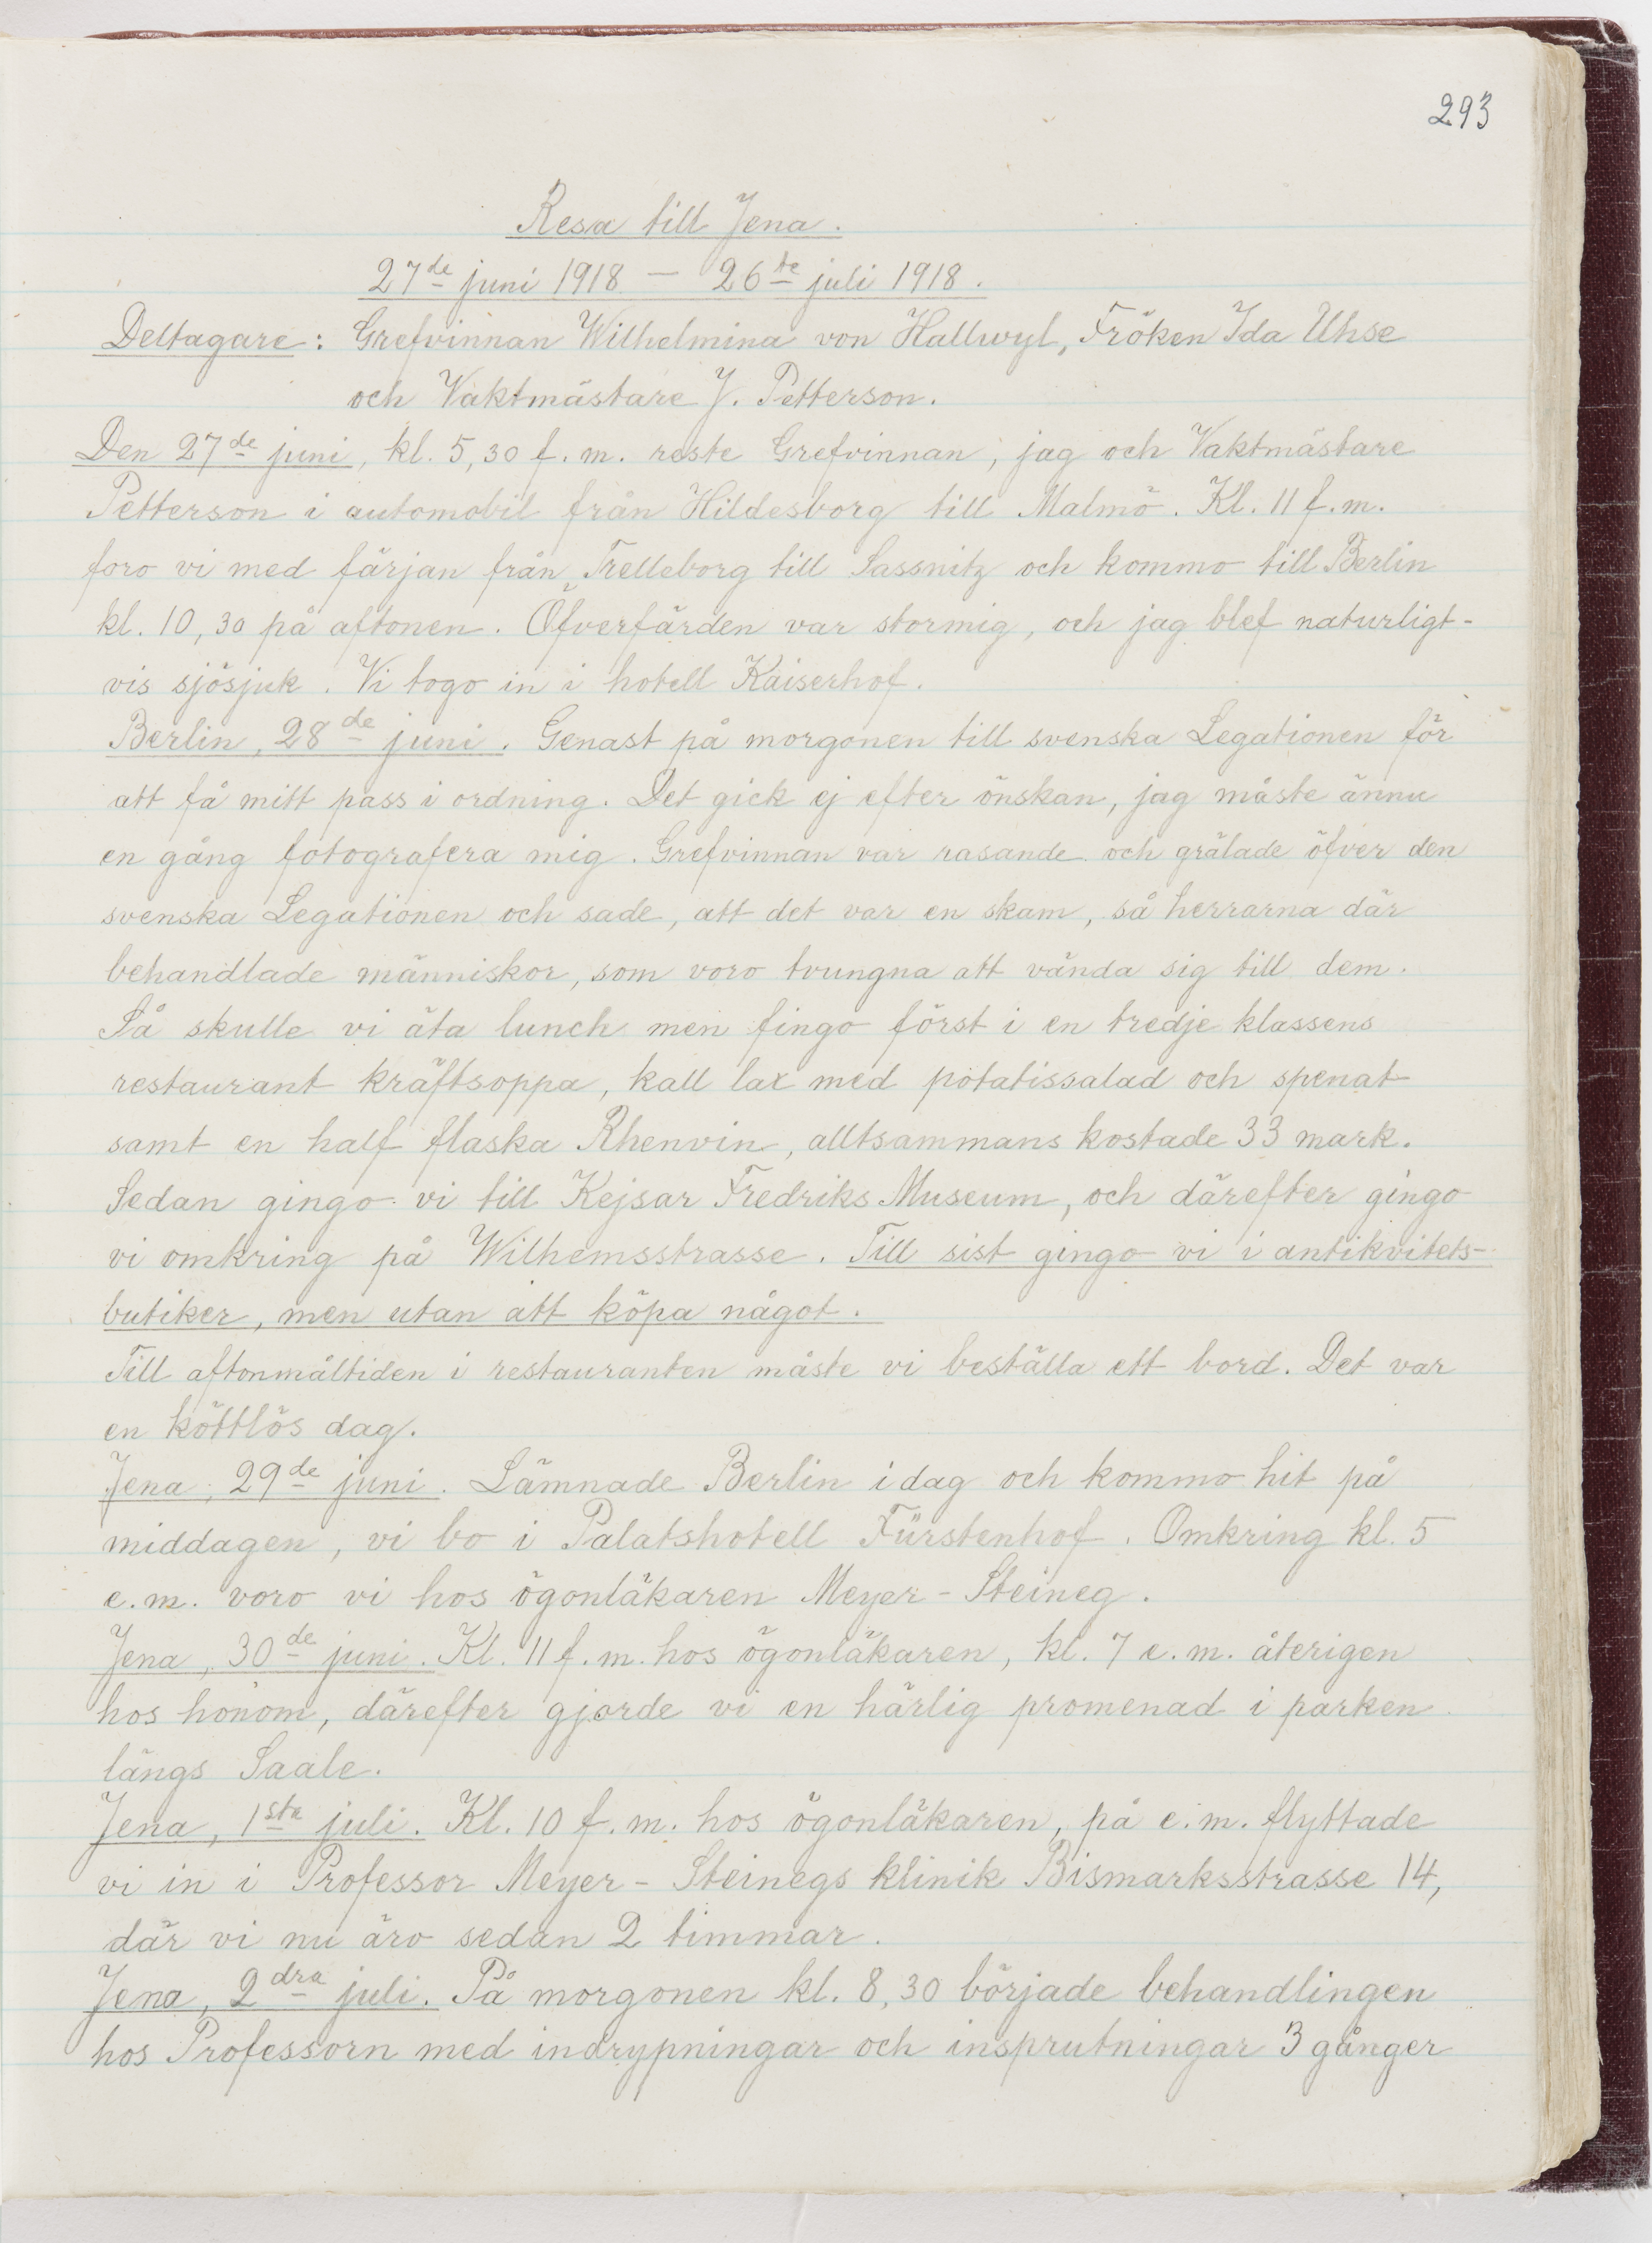 293
Resa till Jena.
27de juni 1918 — 26te juli 1918.
Deltagare: Grefvinnan Wilhelmina von Hallwyl, Fröken Ida Uhse
och Vaktmästare J. Petterson.
Den 27de juni, kl. 5,30 f.m. reste Grefvinnan, jag och Vaktmästare
Petterson i automobil från Hildesborg till Malmö. Kl. 11 f.m.
foro vi med färjan från Trelleborg till Sassnitz och kommo till Berlin
kl. 10,30 på aftonen. Öfverfärden var stormig, och jag blef naturligt-
vis sjösjuk. Vi togo in i hotell Kaiserhof.
Berlin, 28de juni. Genast på morgonen till svenska Legationen för
att få mitt pass i ordning. Det gick ej efter önskan, jag måste ännu
en gång fotografera mig. Grefvinnan var rasande och grälade öfver den
svenska Legationen och sade, att det var en skam, så herrarna där
behandlade människor, som voro tvungna att vända sig till dem.
Så skulle vi äta lunch men fingo först i en tredje klassens
restaurant kräftsoppa, kall lax med potatissalad och spenat
samt en half flaska Rhenvin, alltsammans kostade 33 mark.
Sedan gingo vi till Kejsar Fredriks Museum, och därefter gingo
vi omkring på Wilhemsstrasse. Till sist gingo vi i antikvitets-
butiker, men utan att köpa något.
Till aftonmåltiden i restauranten måste vi beställa ett bord. Det var
en köttlös dag.
Jena, 29de juni. Lämnade Berlin idag och kommo hit på
middagen, vi bo i Palatshotell Fürstenhof. Omkring kl. 5
e.m. voro vi hos ögonläkaren Meyer-Steineg.
Jena, 30de juni. Kl. 11 f.m. hos ögonläkaren, kl. 7 e.m. återigen
hos honom, därefter gjorde vi en härlig promenad i parken
längs Saale.
Jena, 1sta juli. Kl. 10 f.m. hos ögonläkaren, på e.m. flyttade
vi in i Professor Meyer-Steinegs klinik Bismarksstrasse 14,
där vi nu äro sedan 2 timmar.
Jena, 2dra juli. På morgonen kl. 8,30 började behandlingen
hos Professorn med indrypningar och insprutningar 3 gånger